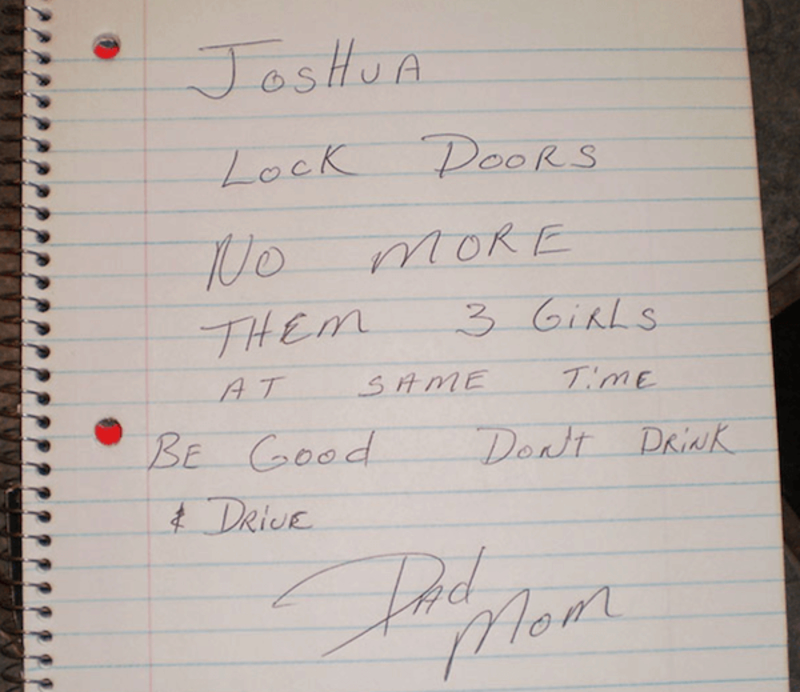 JosHuA
Lock DooRS
No moRE
THEM 3 GiRLS
AT SAME TimE
BE Good Don't DRiNK
& DRiVE
DAd
Mom